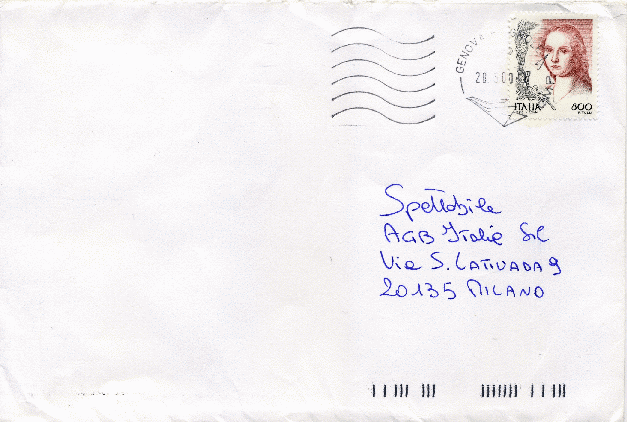 GENOVA
ITALIA
800
Spettabile
AGB Italie Srl
Via S. LATTUADA 9
20135 MILANO